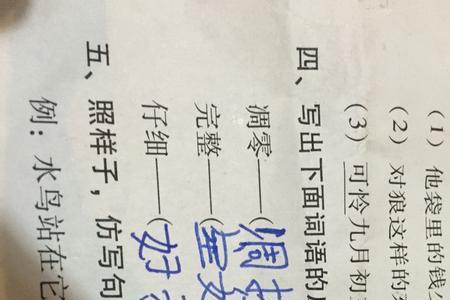 (1) 他袋里的钱
(2) 对狼这样的
(3) 可怜九月初
四、写出下面词语的
凋零——(
完整——(
仔细——(好
五、照样子，仿写句
例：水鸟站在它